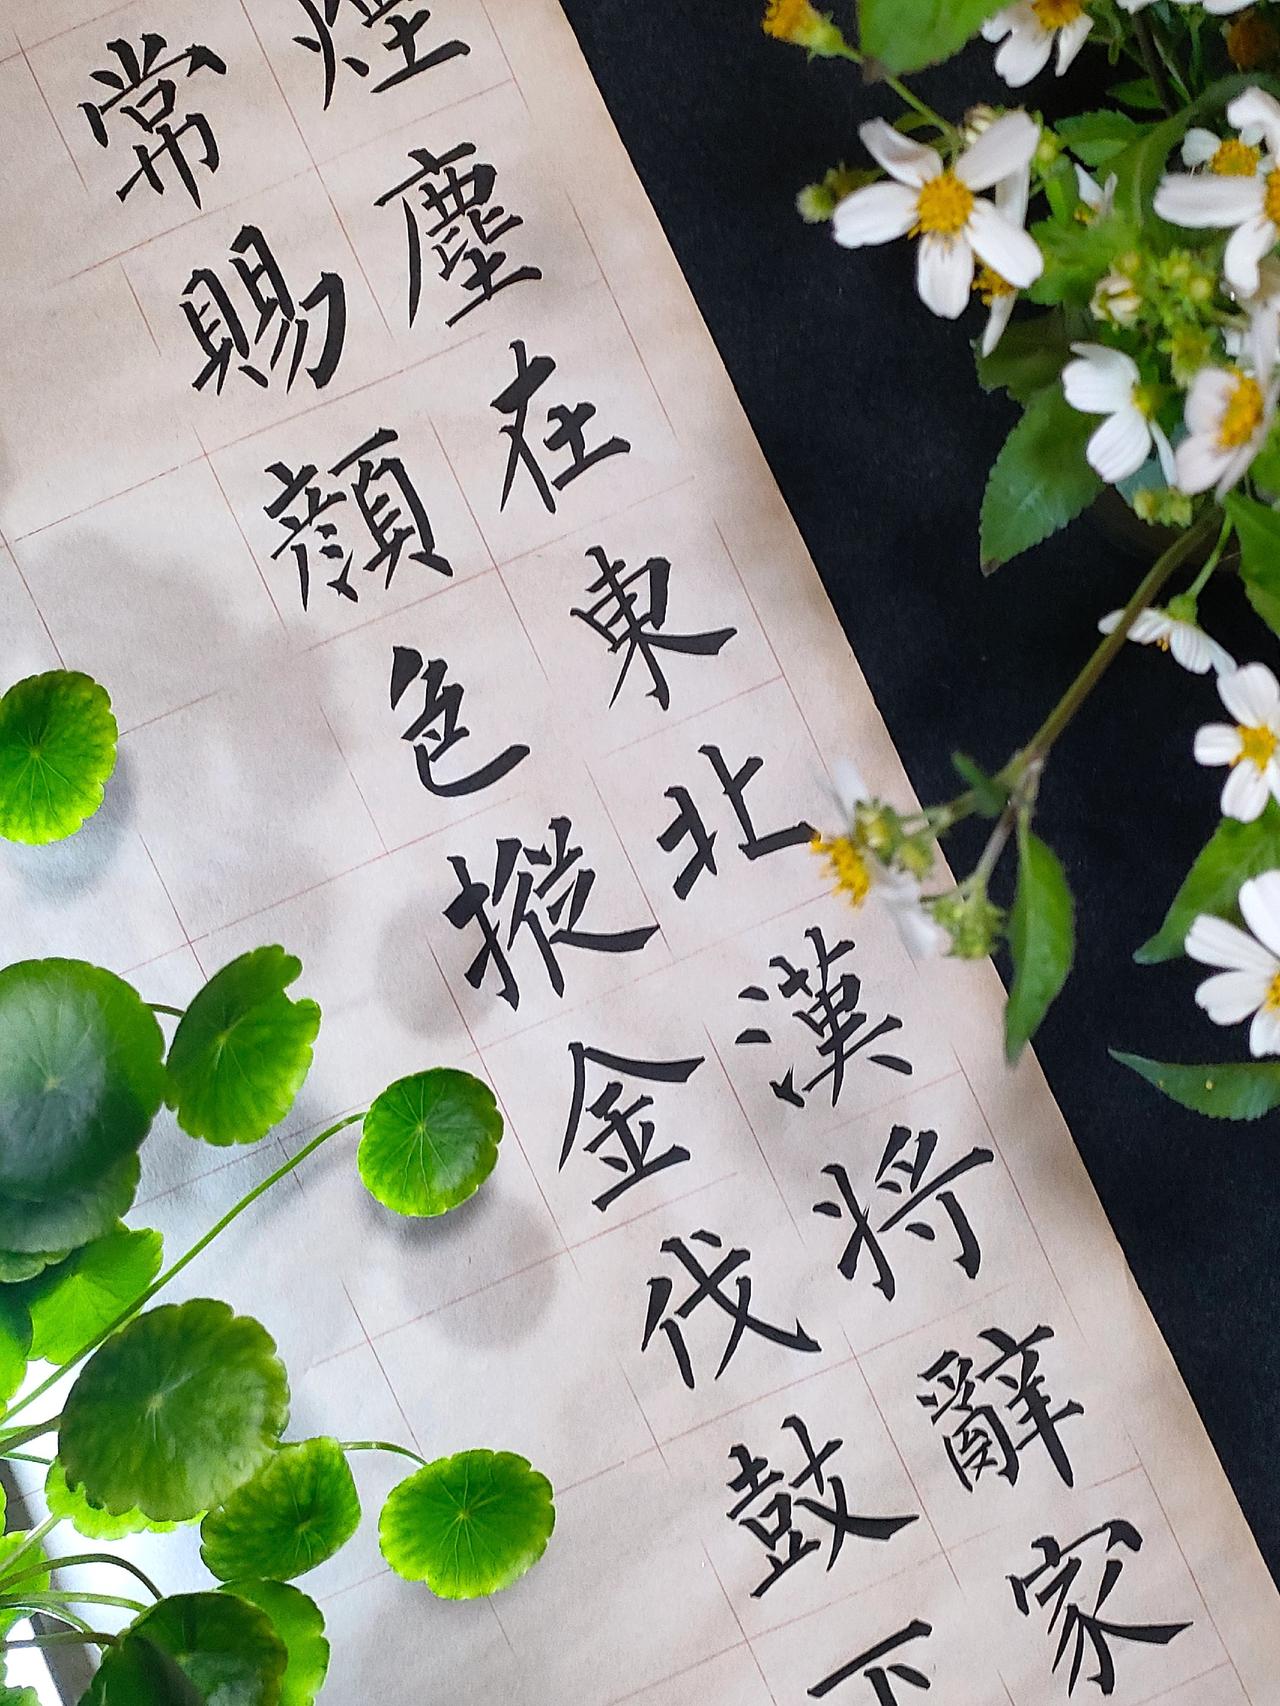 煙塵在東北漢將辭家
常賜顏色摐金伐鼓下